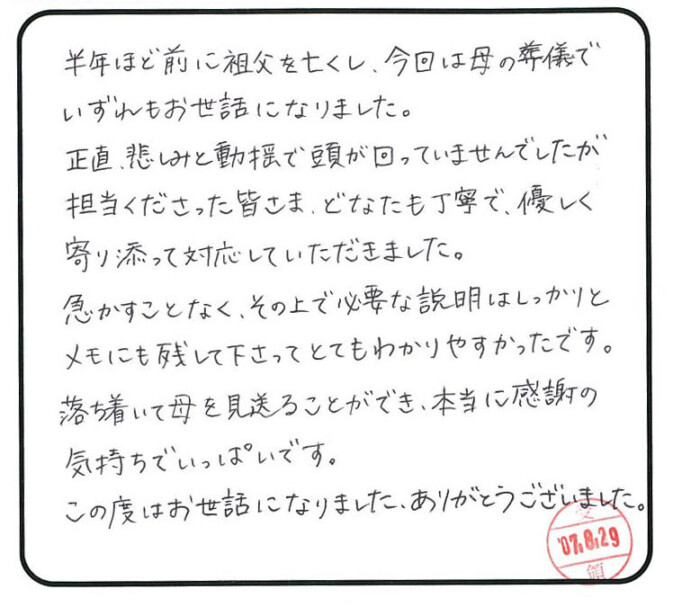 半年ほど前に祖父を亡くし、今回は母の葬儀で
いずれもお世話になりました。
正直、悲しみと動揺で頭が回っていませんでしたが
担当くださった皆さま、どなたも丁寧で、優しく
寄り添って対応していただきました。
急かすことなく、その上で必要な説明はしっかりと
メモにも残して下さってとてもわかりやすかったです。
落ち着いて母を見送ることができ、本当に感謝の
気持ちでいっぱいです。
この度はお世話になりました、ありがとうございました。
受
'07.8.29
領